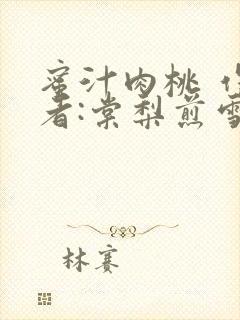 蜜汁肉桃
者:棠梨煎
林赛